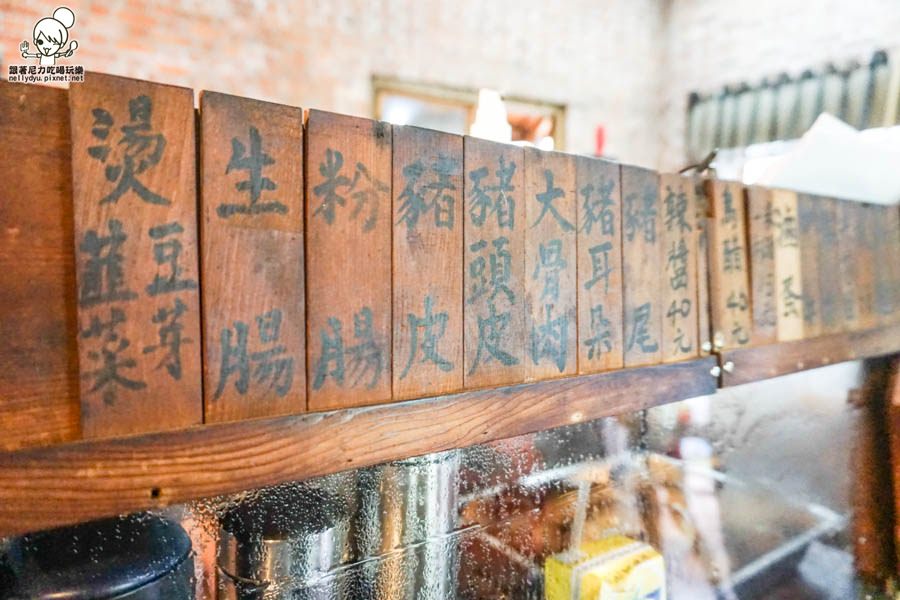 跟著尼力吃喝玩樂
nellydyu.pixnet.net
燙
韭菜
豆芽
生腸
粉腸
豬皮
豬頭皮
大骨肉
豬耳朵
豬尾
辣醬40元